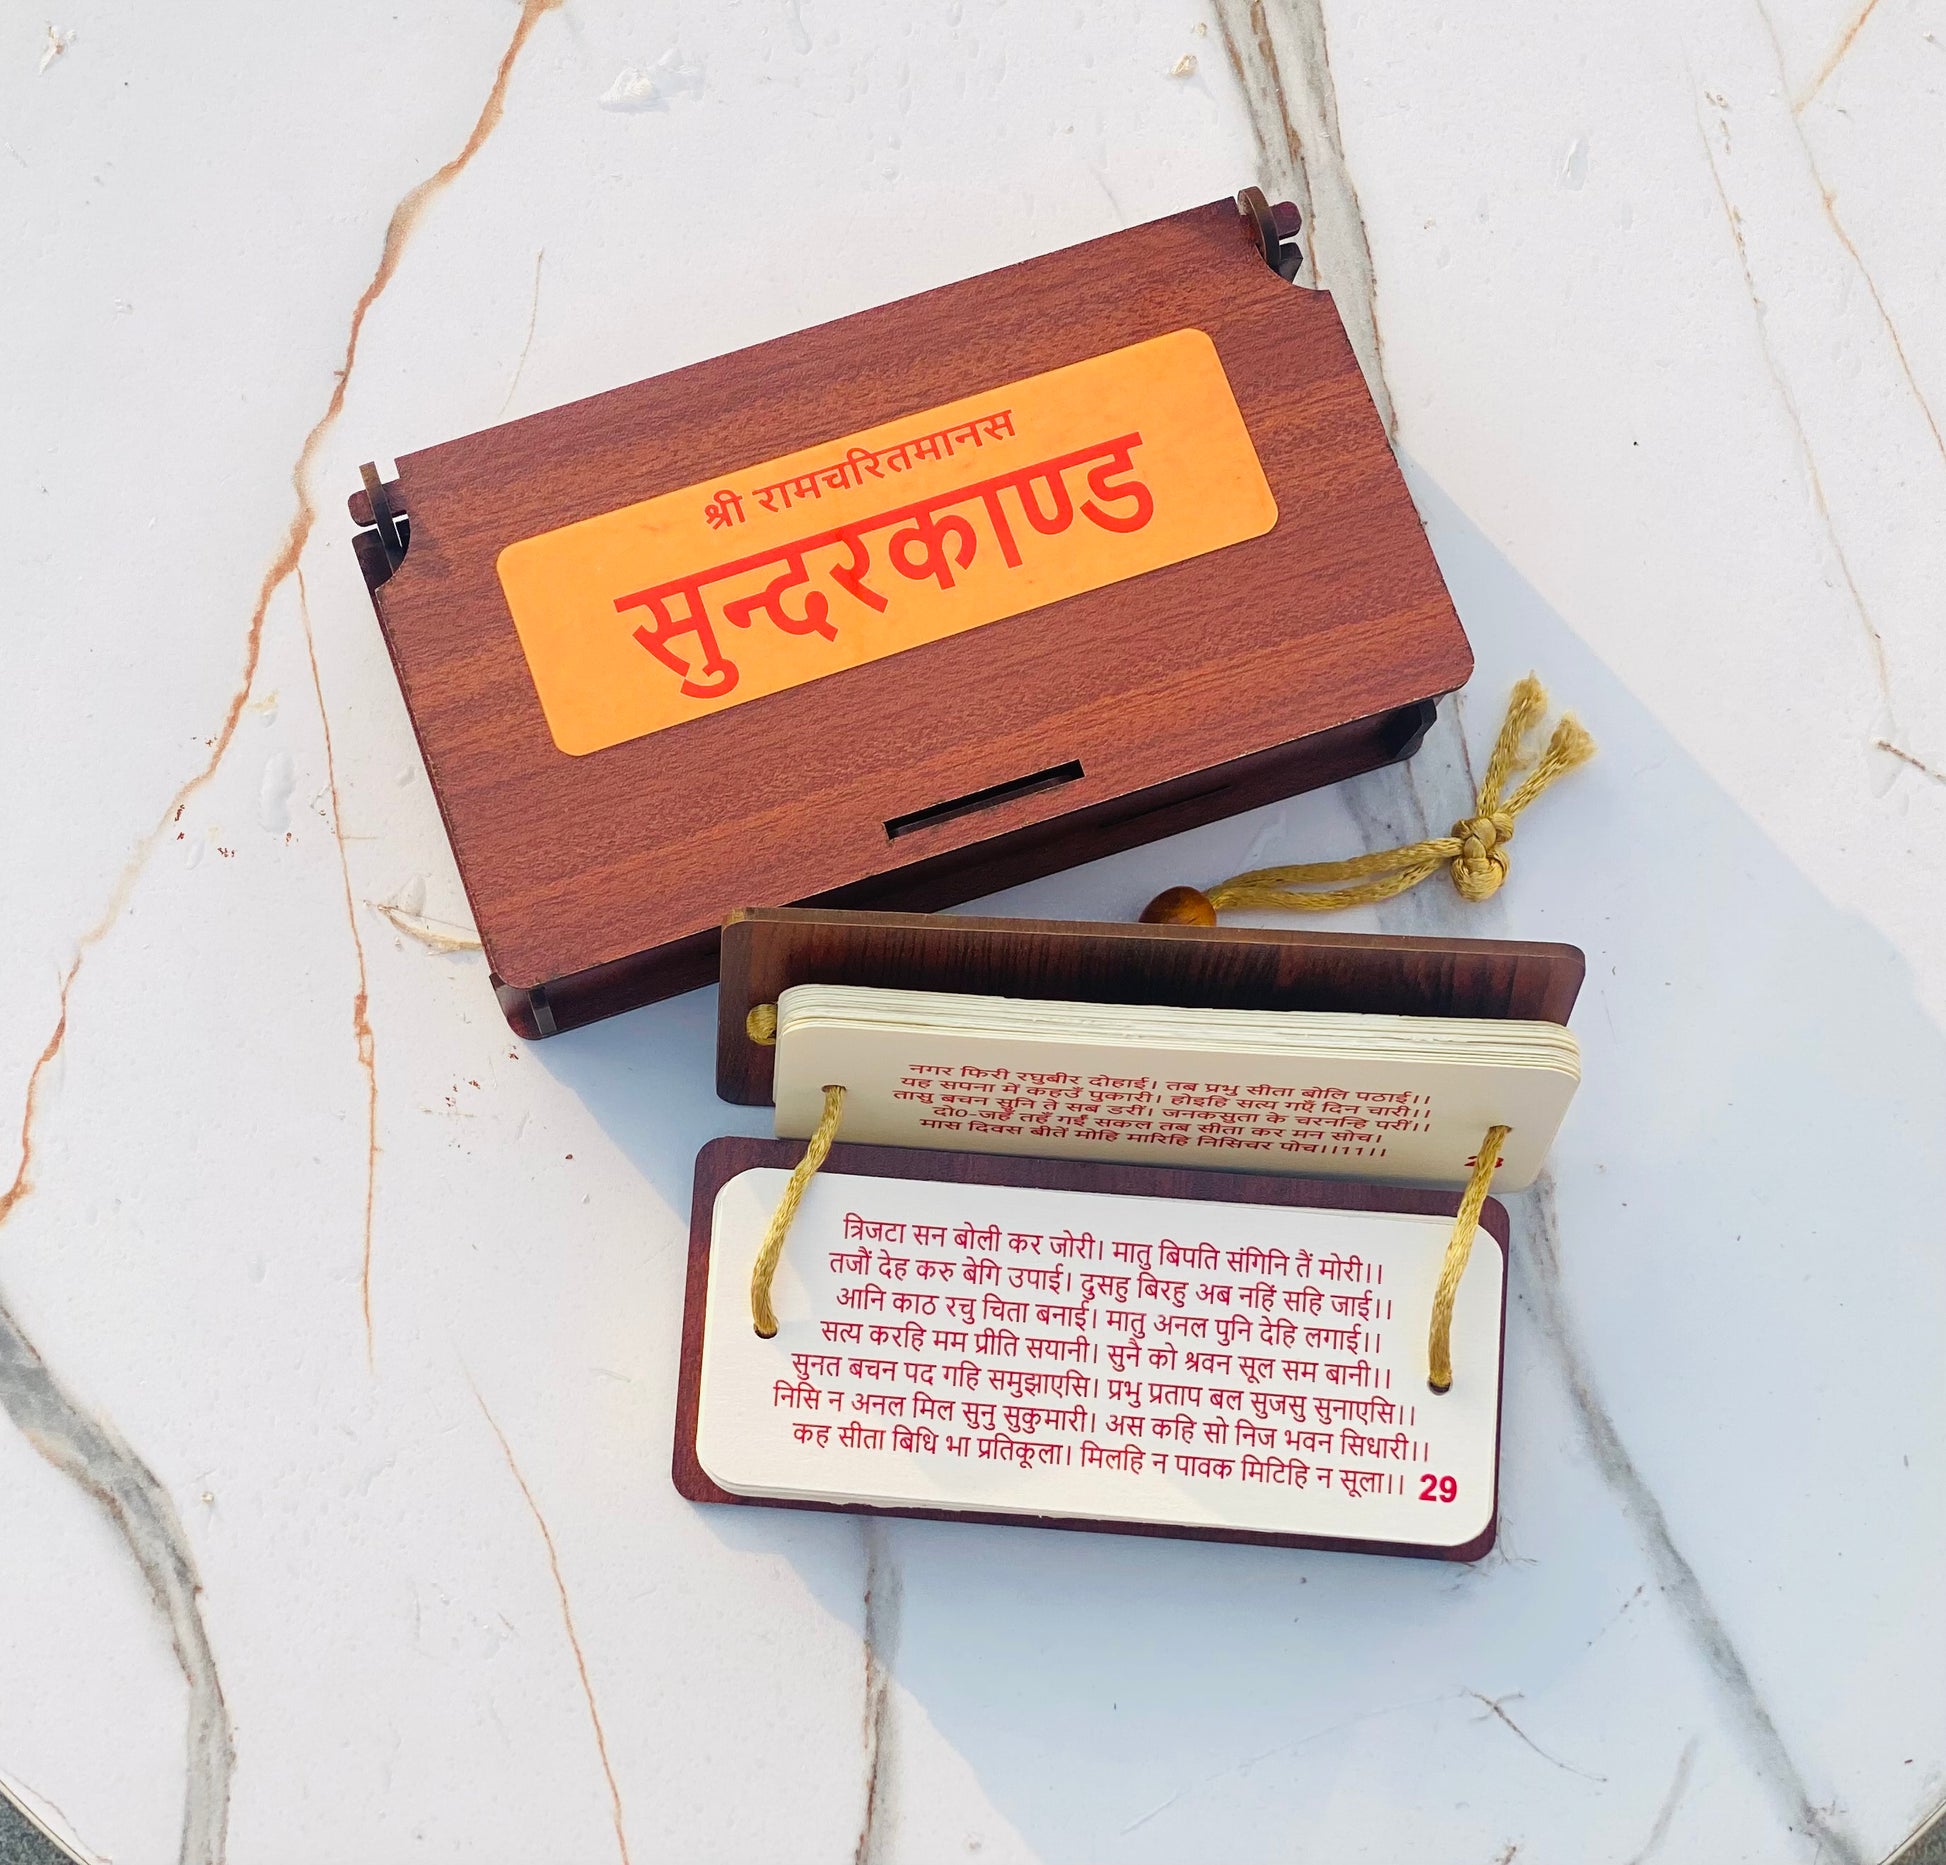 श्री रामचरितमानस
सुन्दरकाण्ड
नगर फिरी रघुबीर दोहाई। तब प्रभु सीता बोलि पठाई।।
यह सपना में कहउँ पुकारी। होइहि सत्य गएँ दिन चारी।।
तासु बचन सुनि ते सब डरीं। जनकसुता के चरनन्हि परीं।।
दो0-जहँ तहँ गईं सकल तब सीता कर मन सोच।
मास दिवस बीतें मोहि मारिहि निसिचर पोच।।11।।
त्रिजटा सन बोली कर जोरी। मातु बिपति संगिनि तैं मोरी।।
तजौं देह करु बेगि उपाई। दुसहु बिरहु अब नहिं सहि जाई।।
आनि काठ रचु चिता बनाई। मातु अनल पुनि देहि लगाई।।
सत्य करहि मम प्रीति सयानी। सुनै को श्रवन सूल सम बानी।।
सुनत बचन पद गहि समुझाएसि। प्रभु प्रताप बल सुजसु सुनाएसि।।
निसि न अनल मिल सुनु सुकुमारी। अस कहि सो निज भवन सिधारी।।
कह सीता बिधि भा प्रतिकूला। मिलहि न पावक मिटिहि न सूला।। 29